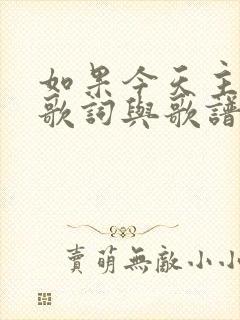 如果今天主
歌詞與歌譜
賣萌無敵小小